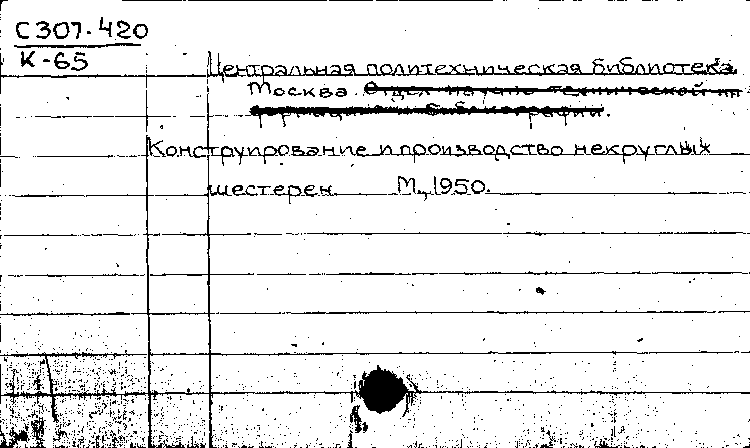 С307.420
К-65
Центральная политехническая библиотека
Москва. Отдел научно технической ин
формации и библиографии.
Конструирование и производство некруглых
шестерен. М., 1950.